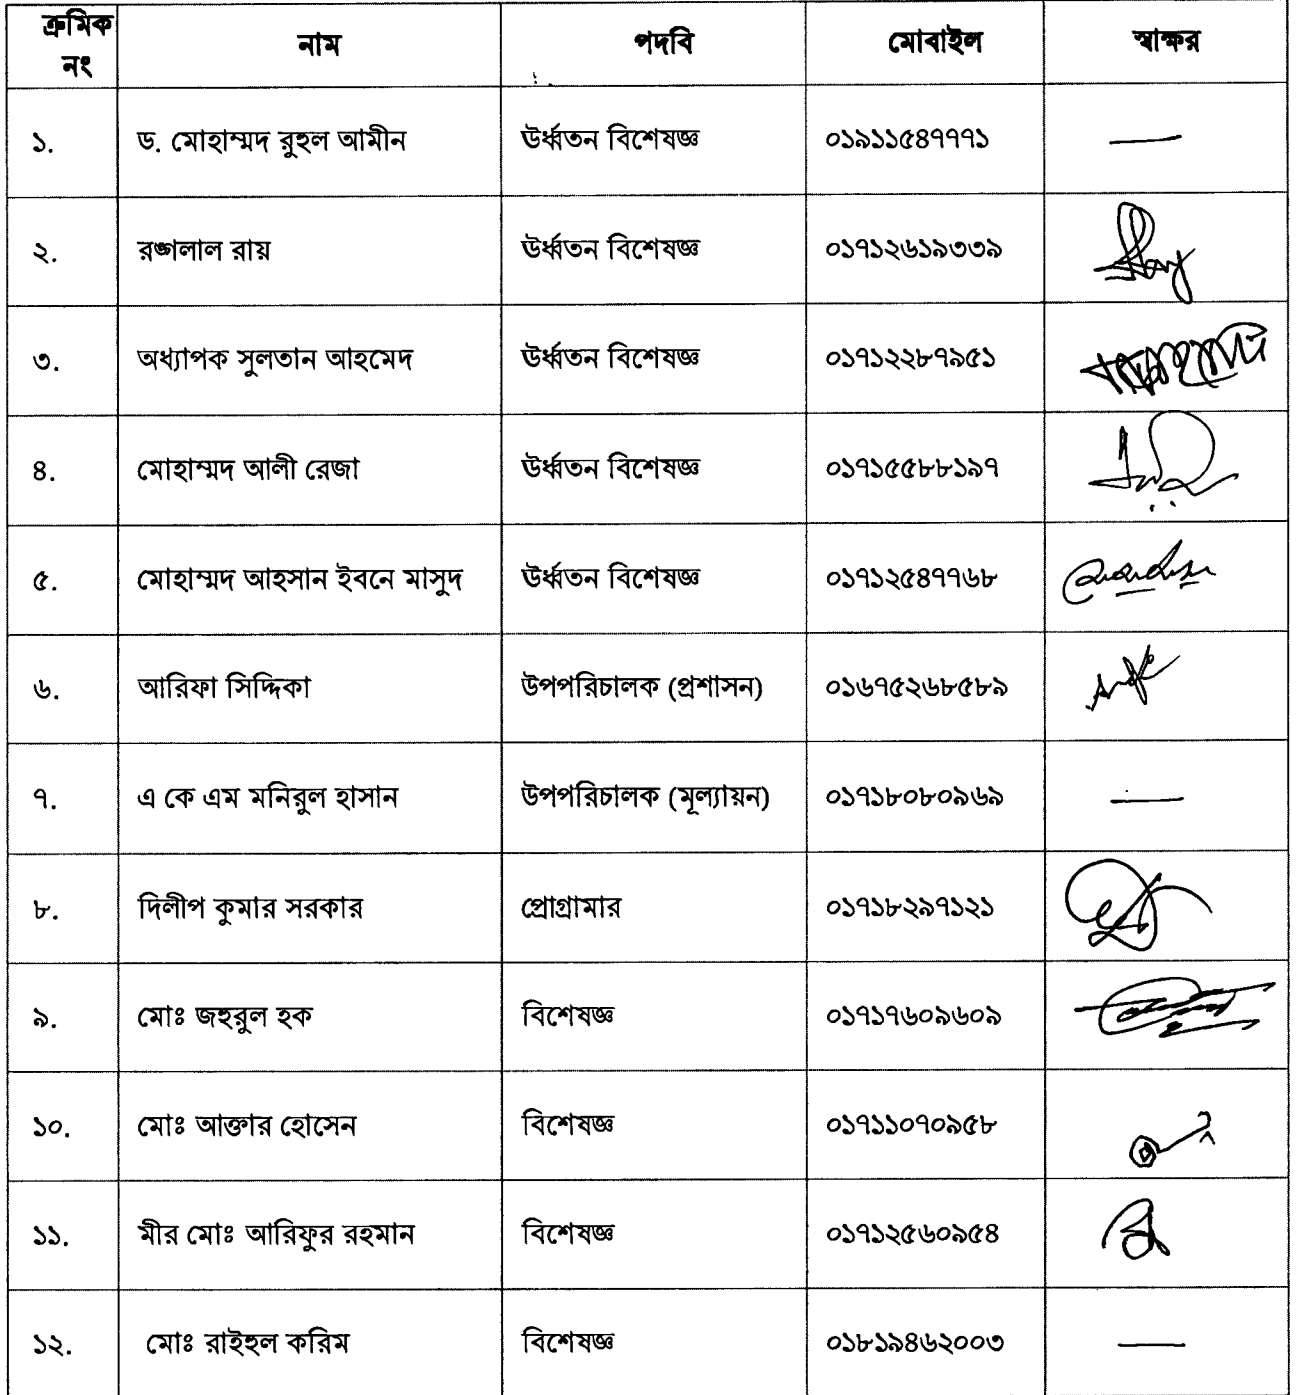 ক্রমিক নং নাম পদবি মোবাইল স্বাক্ষর
১. ড. মোহাম্মদ রুহুল আমীন ঊর্ধ্বতন বিশেষজ্ঞ ০১৯১১৫৪৭৭৭১ —
২. রঙ্গলাল রায় ঊর্ধ্বতন বিশেষজ্ঞ ০১৭১২৬১৯৩৩৯
৩. অধ্যাপক সুলতান আহমেদ ঊর্ধ্বতন বিশেষজ্ঞ ০১৭১২২৮৭৯৫১
৪. মোহাম্মদ আলী রেজা ঊর্ধ্বতন বিশেষজ্ঞ ০১৭১৫৫৮৮১৯৭
৫. মোহাম্মদ আহসান ইবনে মাসুদ ঊর্ধ্বতন বিশেষজ্ঞ ০১৭১২৫৪৭৭৬৮
৬. আরিফা সিদ্দিকা উপপরিচালক (প্রশাসন) ০১৬৭৫২৬৮৫৮৯
৭. এ কে এম মনিরুল হাসান উপপরিচালক (মূল্যায়ন) ০১৭১৮০৮০৯৬৯ —
৮. দিলীপ কুমার সরকার প্রোগ্রামার ০১৭১৮২৯৭১২১
৯. মোঃ জহুরুল হক বিশেষজ্ঞ ০১৭১৭৬০৯৬০৯
১০. মোঃ আক্তার হোসেন বিশেষজ্ঞ ০১৭১১০৭০৯৫৮
১১. মীর মোঃ আরিফুর রহমান বিশেষজ্ঞ ০১৭১২৫৬০৯৫৪
১২. মোঃ রাইহুল করিম বিশেষজ্ঞ ০১৮১৯৪৬২০০৩ —